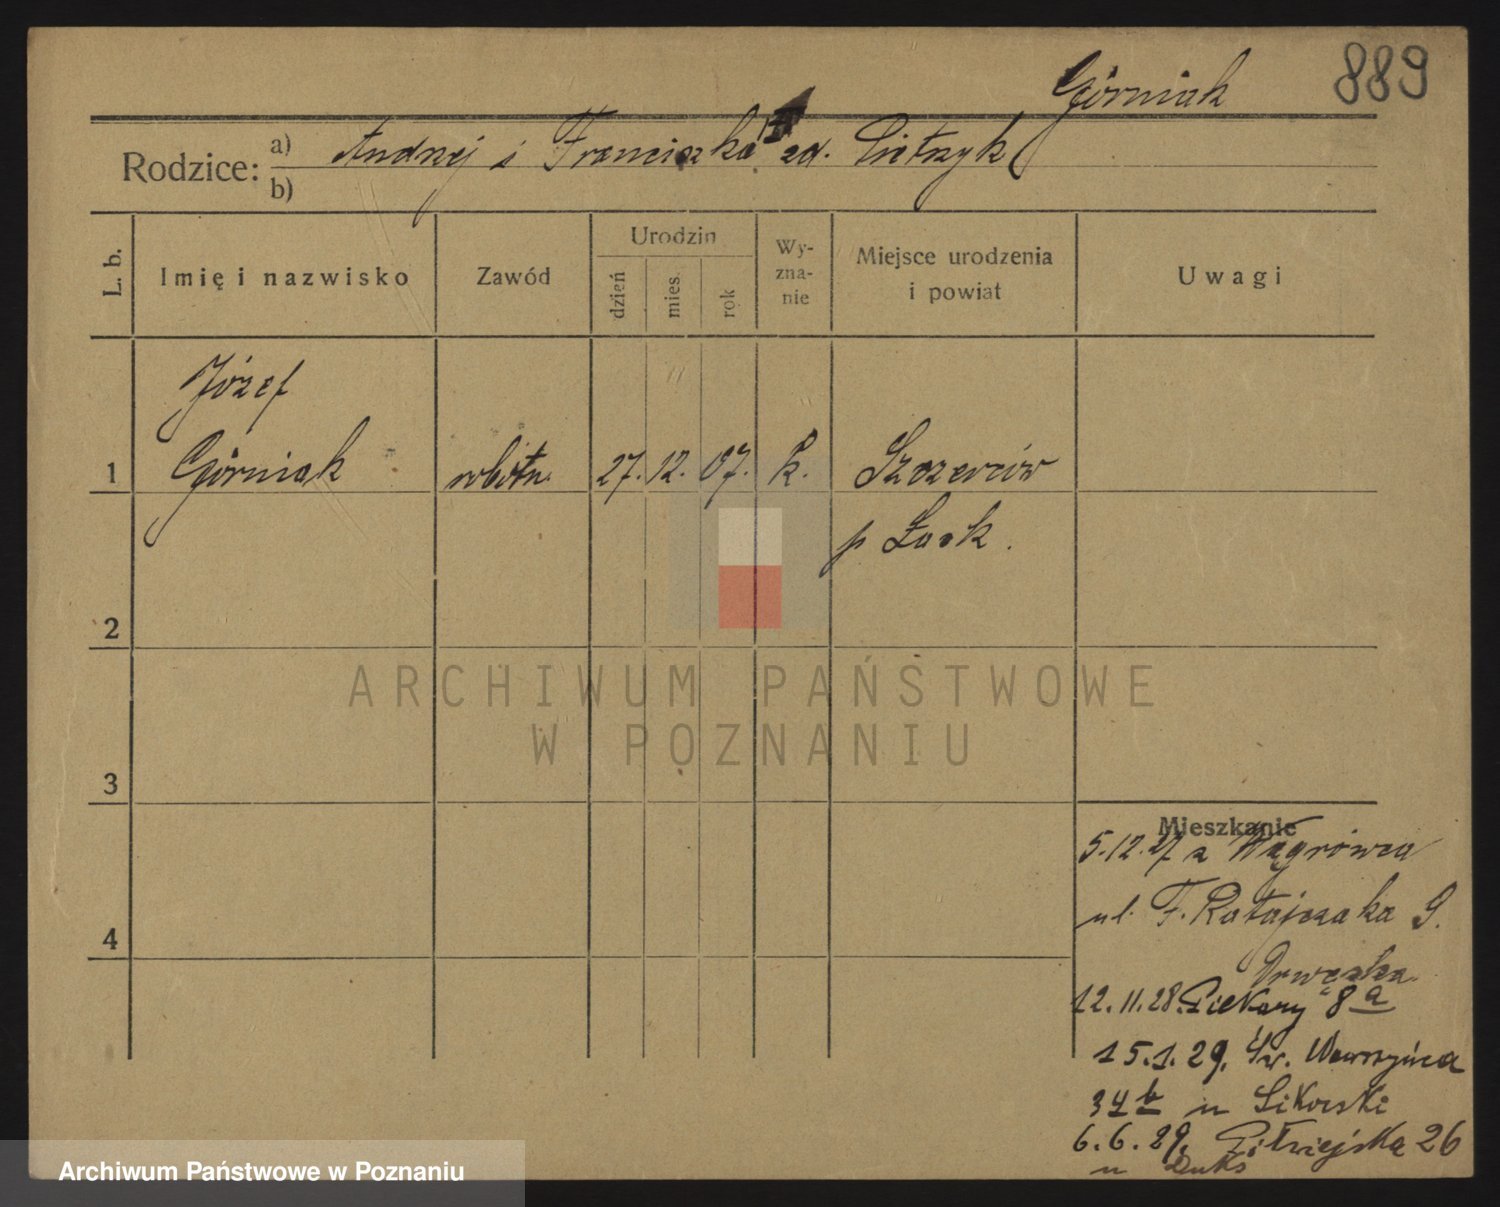 Górniak
889
Rodzice:
a) Andrzej i Franciszka zd. Pietrzyk
b)
L. b.
Imię i nazwisko
Zawód
Urodzin
dzień
mies.
rok
Wy-
zna-
nie
Miejsce urodzenia
i powiat
Uwagi
Józef
1 Górniak robotn. 27. 12. 07. k. Szczerców
p Łask.
2
3
4
Mieszkanie
5.12.27 z Wągrówca
ul. F. Ratajczaka 9.
Drwęska
12.11.28. Piekary 8a
15.1.29. Św. Wawrzyńca
34b u Sikorski
6.6.29.
26
u
ARCHIWUM PAŃSTWOWE
W POZNANIU
Archiwum Państwowe w Poznaniu